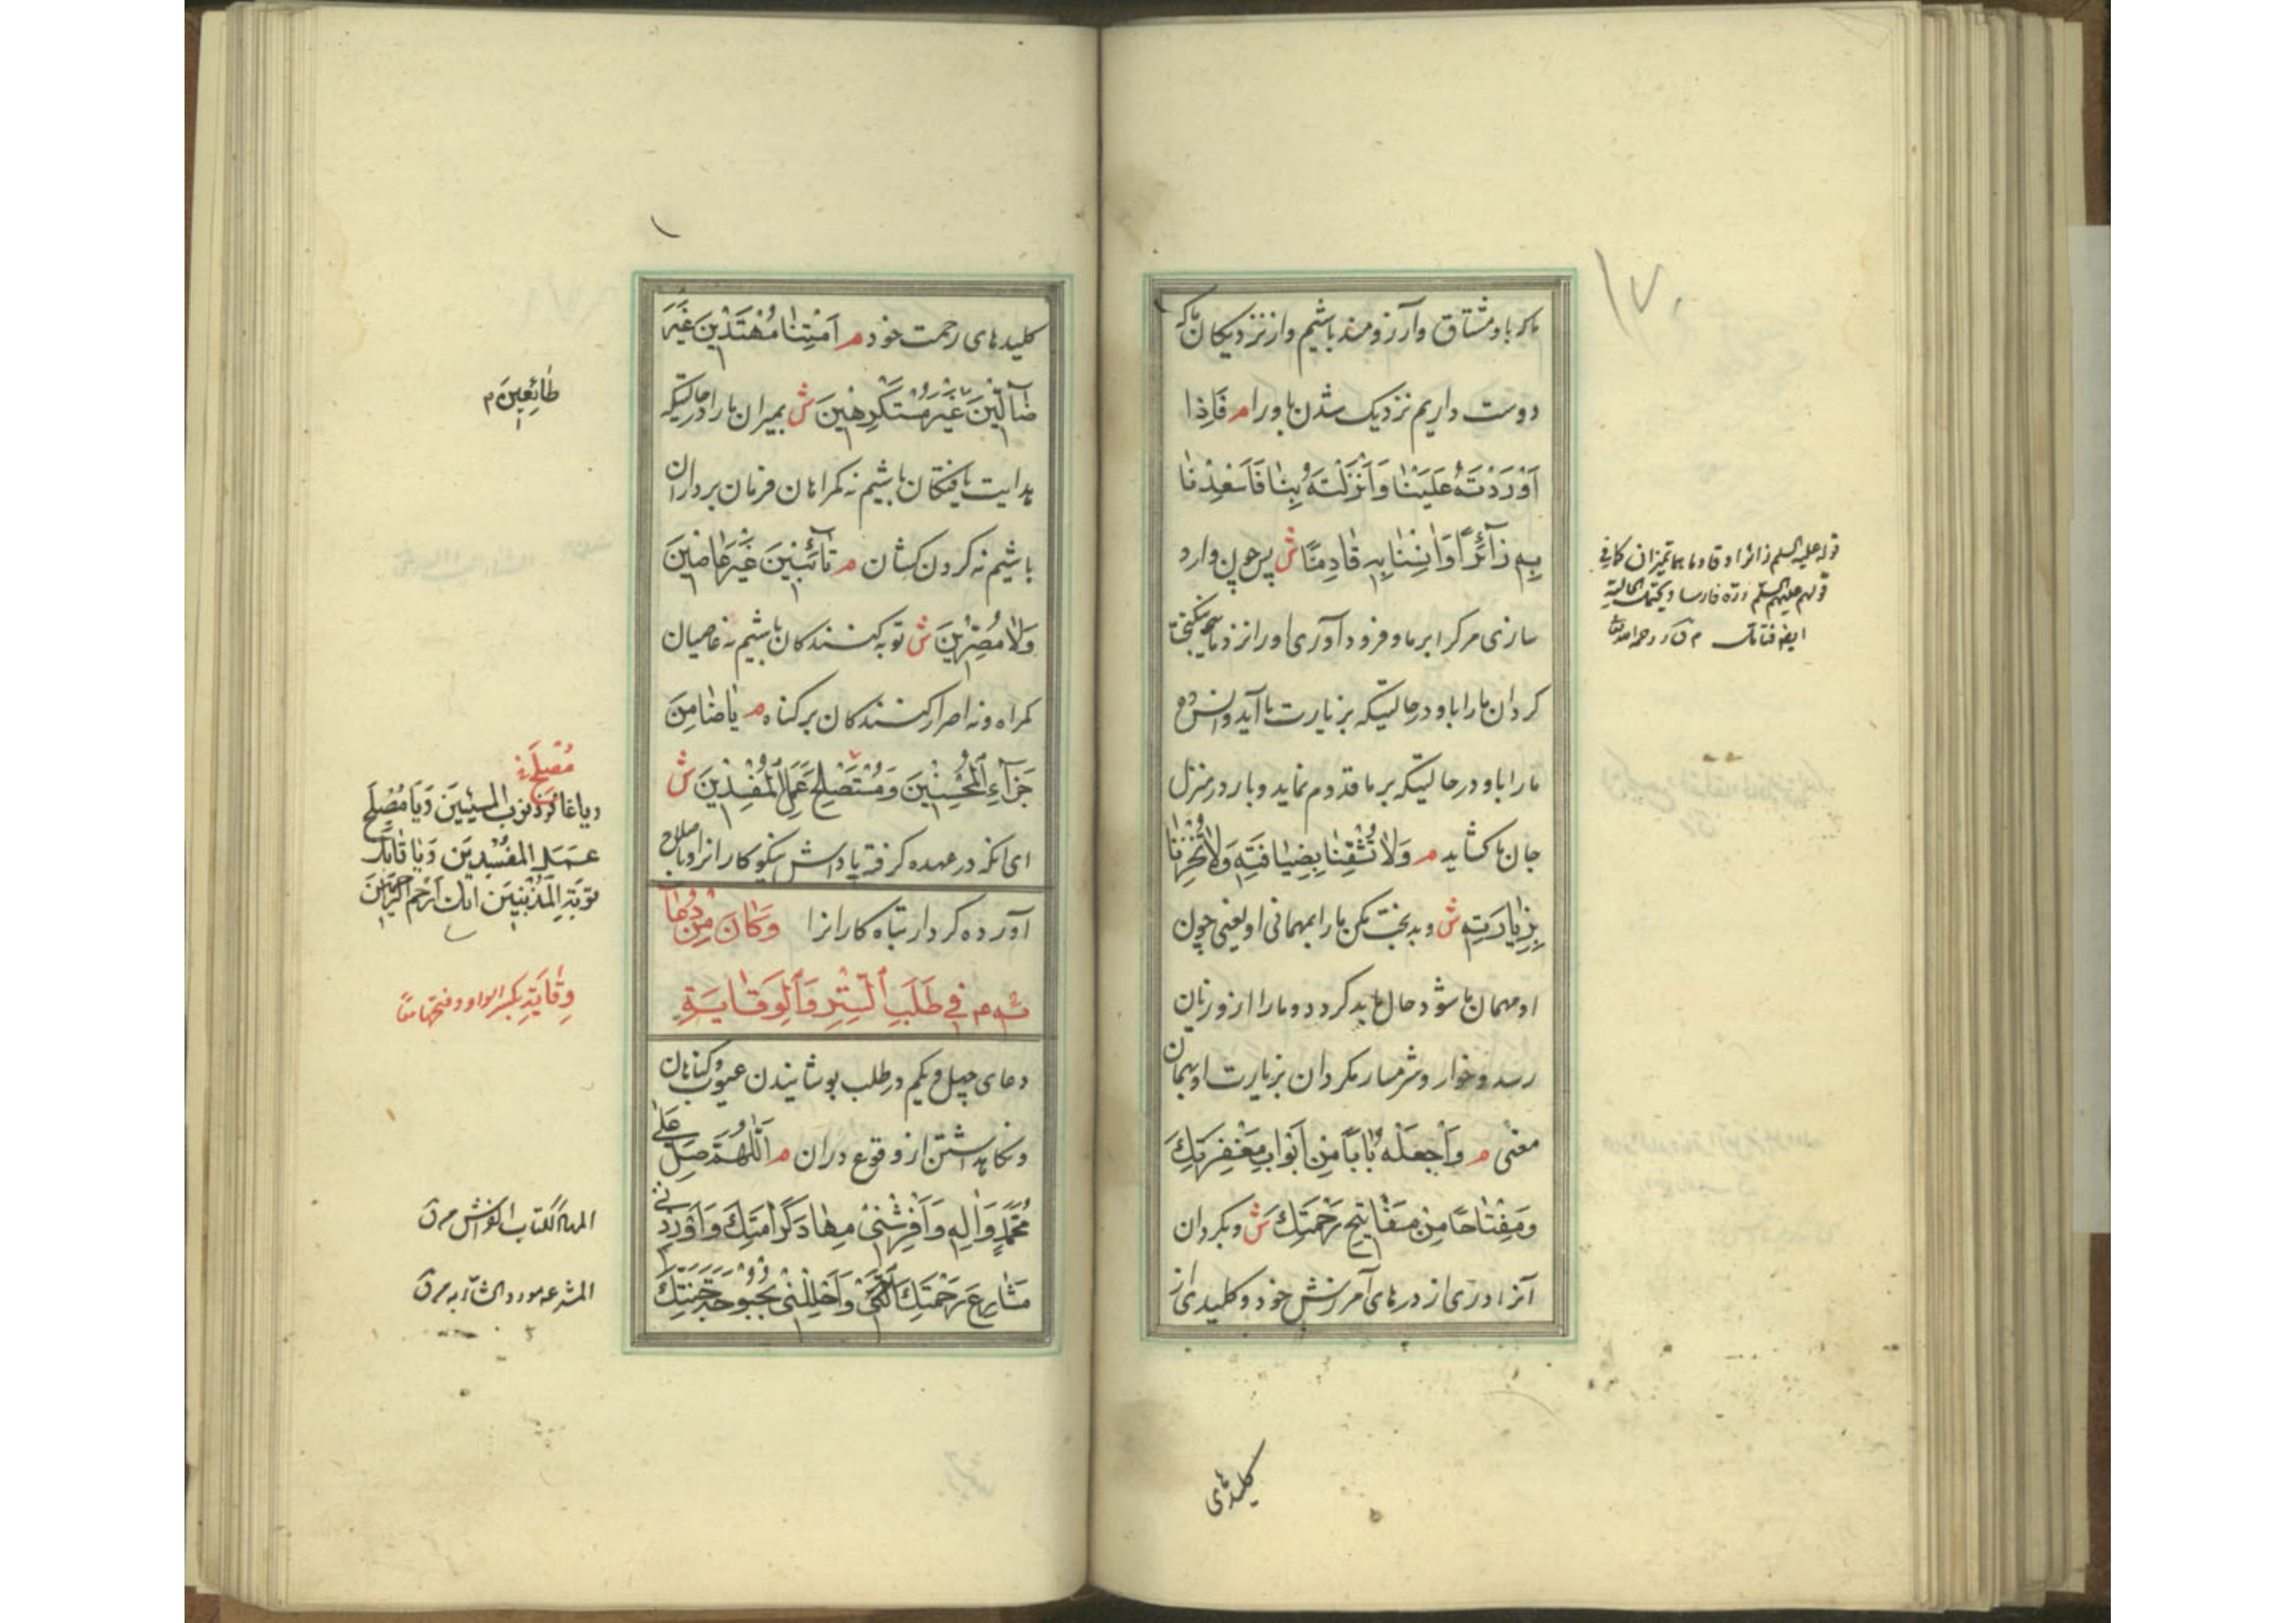 ۱۷۰
ما که باو مشتاق و آرزومند باشیم و از نزدیکان ما که
دوست داریم نزدیک شدن باو را م فَاِذا
اَوْرَدْتَهُ عَلَیْنا وَ اَنْزَلْتَهُ بِنا فَاَسْعِدْنا
بِهِ زائِرًا وَ انِسْنا بِهِ قادِمًا ش پس چون وارد
سازی مرک را بر ما و فرود آوری او را نزد ما نیکبخت
کردان ما را باو در حالتیکه بزیارت ما آید و انس ده
ما را باو در حالتیکه بر ما قدوم نماید و بار در منزل
جان ما کشاید م وَلا تُشْقِنا بِضِیافَتِهِ وَلا تُخْزِنا
بِزِیارَتِهِ ش و بدبخت مکن ما را بمهمانی او یعنی چون
او مهمان ما شود حال ما بد کردد و ما را ازو زیان
رسد و خوار و شرمسار مکردان بزیارت او بهمان
معنی م وَاجْعَلْهُ بابًا مِنْ اَبْوابِ مَغْفِرَتِكَ
وَمِفْتاحًا مِنْ مَفاتیحِ رَحْمَتِكَ ش و بکردان
آنرا دری از درهای آمرزش خود و کلیدی از
قوله علیه السلم زائرا و قادما هما تمیزان کما فی
قولهم علیهم السلم دره فارسا و یحتمل الحالیة
کلیدهای
کلیدهای رحمت خود م اَمِتْنا مُهْتَدینَ غَیْرَ
ضآلّینَ غَیْرَ مُسْتَکْرِهینَ ش بمیران ما را در حالتیکه
هدایت یافتکان باشیم نه کمراهان فرمان برداران
باشیم نه کردن کشان م تآئِبینَ غَیْرَ عاصینَ
وَلا مُصِرّینَ ش توبه کنندکان باشیم نه عاصیان
کمراه و نه اصرار کنندکان بر کناه م یا ضامِنَ
جَزآءِ الْمُحْسِنینَ وَ مُسْتَصْلِحَ عَمَلِ الْمُفْسِدینَ ش
ای انکه در عهده کرفته پاداش نیکوکارانرا و باصلاح
آورده کردار تباه کارانرا وَ كانَ مِنْ دُعآ
ئِهِ ۴۱ فی طَلَبِ السِّتْرِ وَ الْوِقایَةِ
دعای چهل و یکم در طلب پوشانیدن عیوب و کناهان
و نکاهداشتن از وقوع در ان م اَللّهُمَّ صَلِّ عَلی
مُحَمَّدٍ وَ الِهِ وَ اَفْرِشْنی مِهادَ كَرامَتِكَ وَ اَوْرِدْنی
مَشارِعَ رَحْمَتِكَ وَ اَحْلِلْنی بُحْبُوحَةَ جَنَّتِكَ
طائِعینَ م
مُصْلِحَ
و یا غافر ذنوب المسیئین وَ یا مُصْلِحَ
عَمَلِ المفسِدینَ وَ یا قابِلَ
توبَةِ المُذْنِبینَ انك اَرْحَم الراحمینَ
وِقایَةِ بکسر الواو و فتحها معًا
المهاد ککتاب الفراش م ق
المشرعه مورد الشاربه م ق